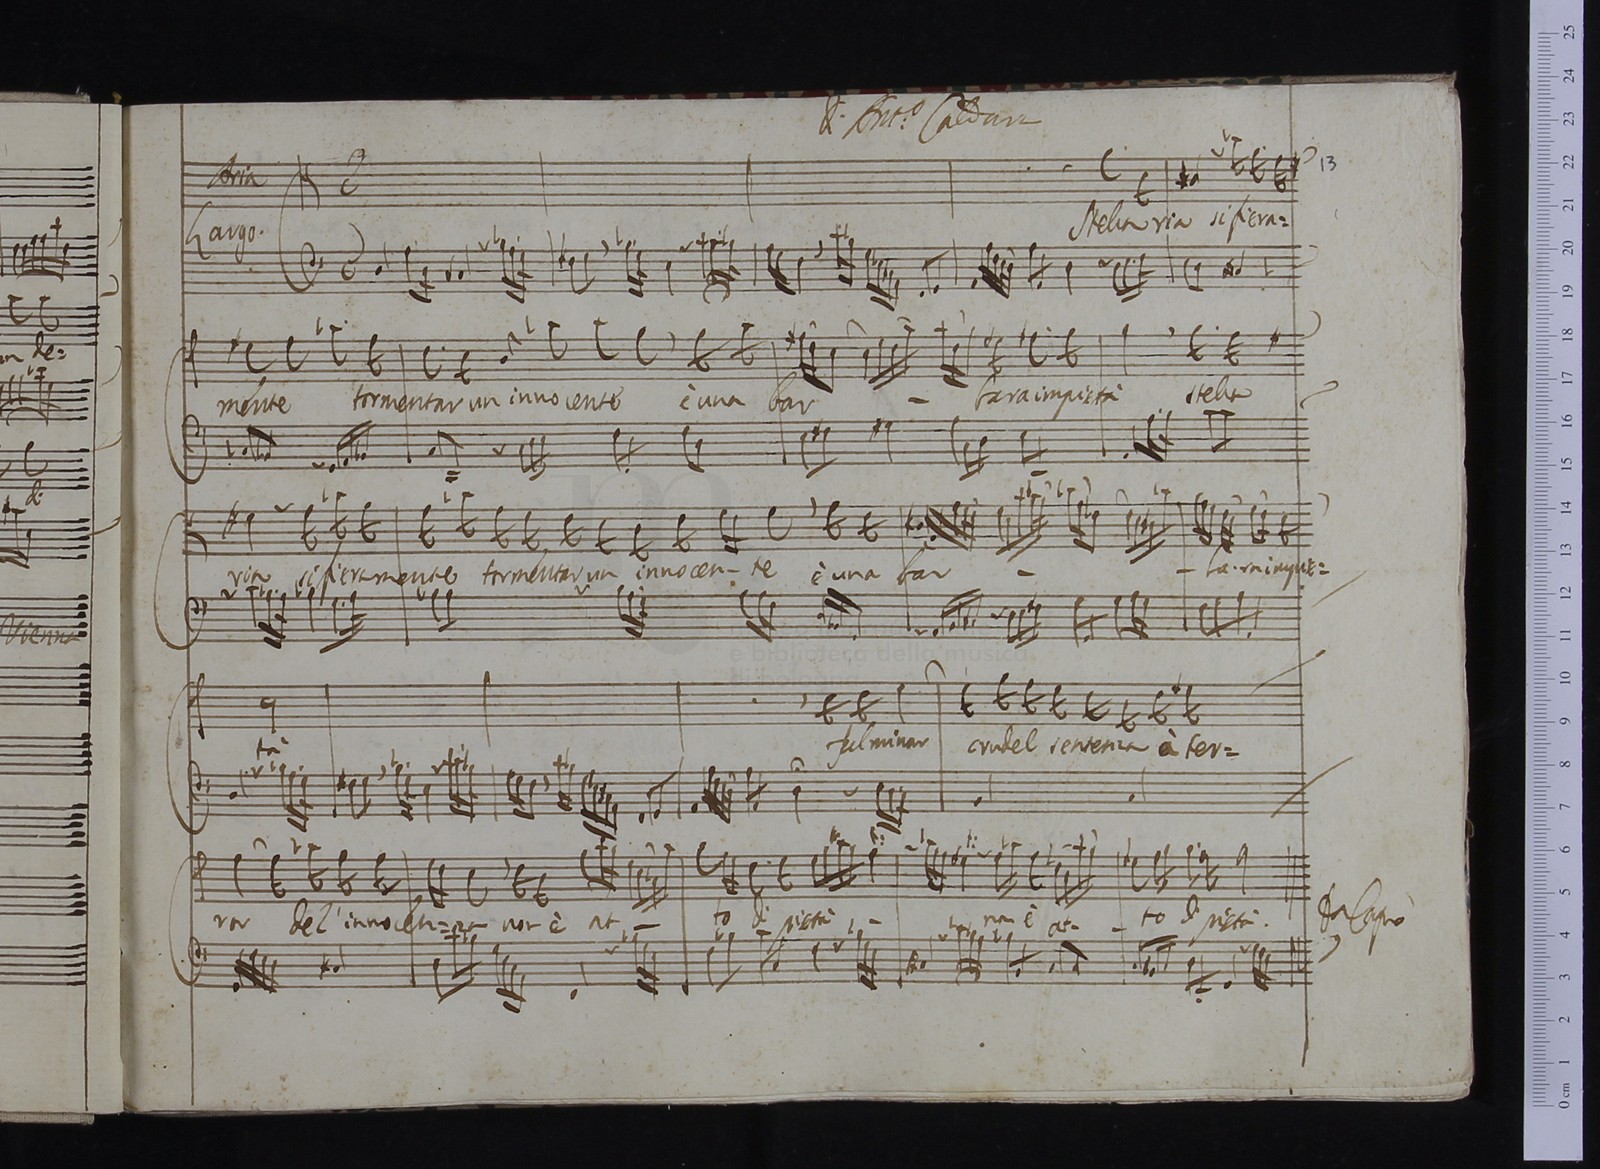 di Ant.º Caldara
13
Aria
Largo.
Stella ria si fiera=
mente tormentar un innocente è una bar - bara impietà stella
ria si fieramente tormentar un innocen- te è una bar - - bara impie=
tà fulminar crudel sentenza à ter=
ror del' innocen=za non è at - to di pietà - - non è at- - to di pietà.
Da Capo
un de=
di
Vienna
e biblioteca della musica
0 cm 1 2 3 4 5 6 7 8 9 10 11 12 13 14 15 16 17 18 19 20 21 22 23 24 25